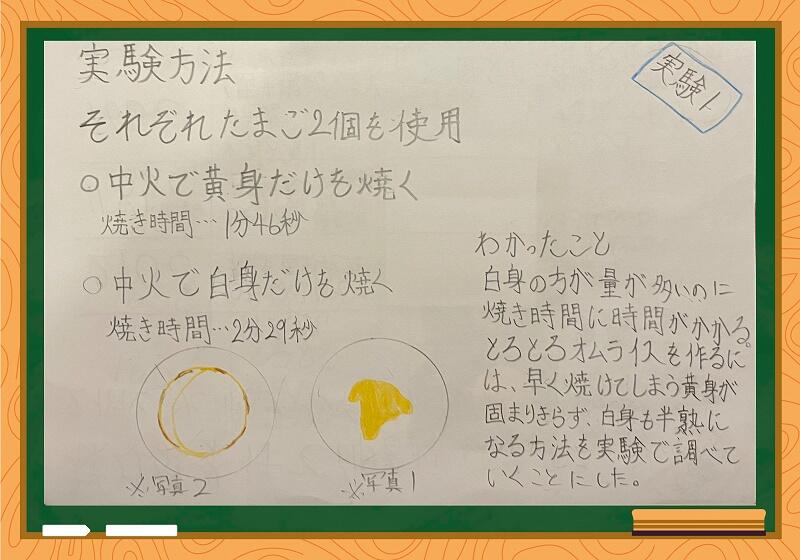 実験方法
実験1
それぞれたまご2個を使用
○中火で黄身だけを焼く
焼き時間…1分46秒
○中火で白身だけを焼く
焼き時間…2分29秒
※写真2
※写真1
わかったこと
白身の方が量が多いのに
焼き時間に時間がかかる。
とろとろオムライスを作るに
は、早く焼けてしまう黄身が
固まりきらず、白身も半熟に
なる方法を実験で調べて
いくことにした。